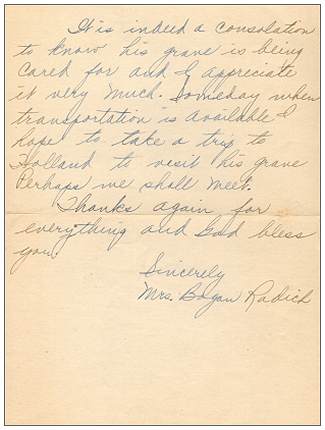 It is indeed a consolation
to know his grave is being
cared for and I appreciate
it very much. Someday when
transportation is available I
hope to take a trip to
Holland to visit his grave
Perhaps we shall meet.
Thanks again for
everything and God bless
you.
Sincerely
Mrs. Bogan Radich